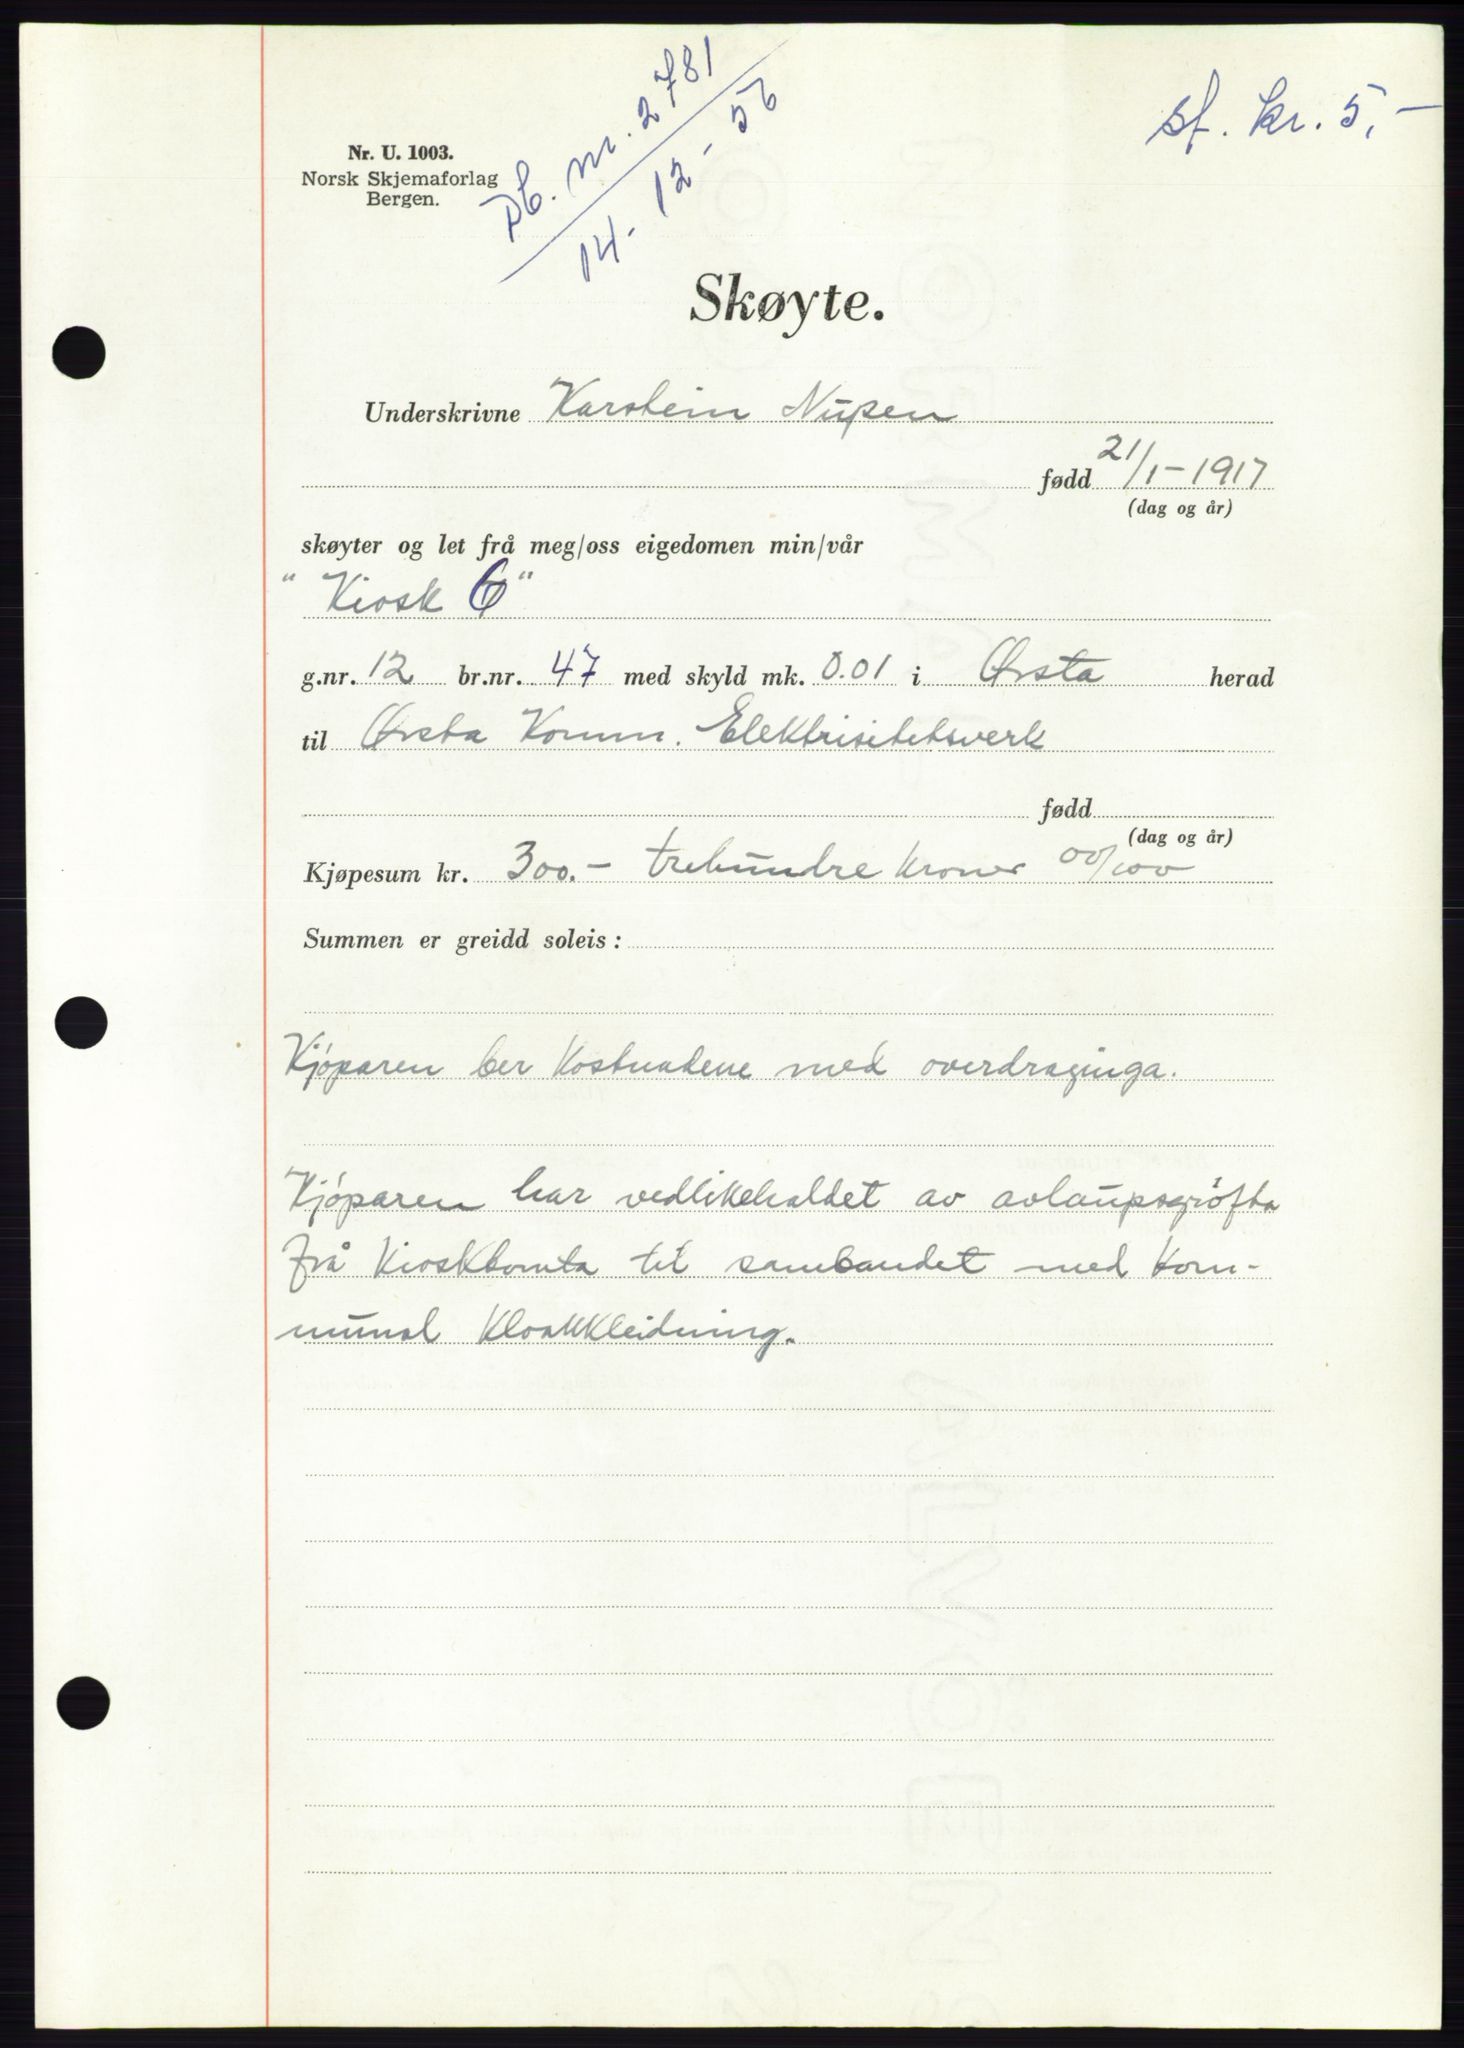 Db. nr. 2781
14-12-56
sf. kr. 5,-
Nr. U. 1003.
Norsk Skjemaforlag
Bergen.
Skøyte.
Underskrivne Karstein Nupen
fødd 21/1-1917
(dag og år)
skøyter og let frå meg/oss eigedomen min/vår
"Kiosk 6"
g.nr. 12 br.nr. 47 med skyld mk. 0.01 i Ørsta herad
til Ørsta Komm. Elektrisitetsverk
fødd
(dag og år)
Kjøpesum kr. 300.- trehundre kroner 00/100
Summen er greidd soleis:
Kjøparen ber kostnadene med overdraginga.
Kjøparen har vedlikehaldet av avlaupsgrøfta
frå Kiosktomta til sambandet med kom-
munal kloakkleidning.